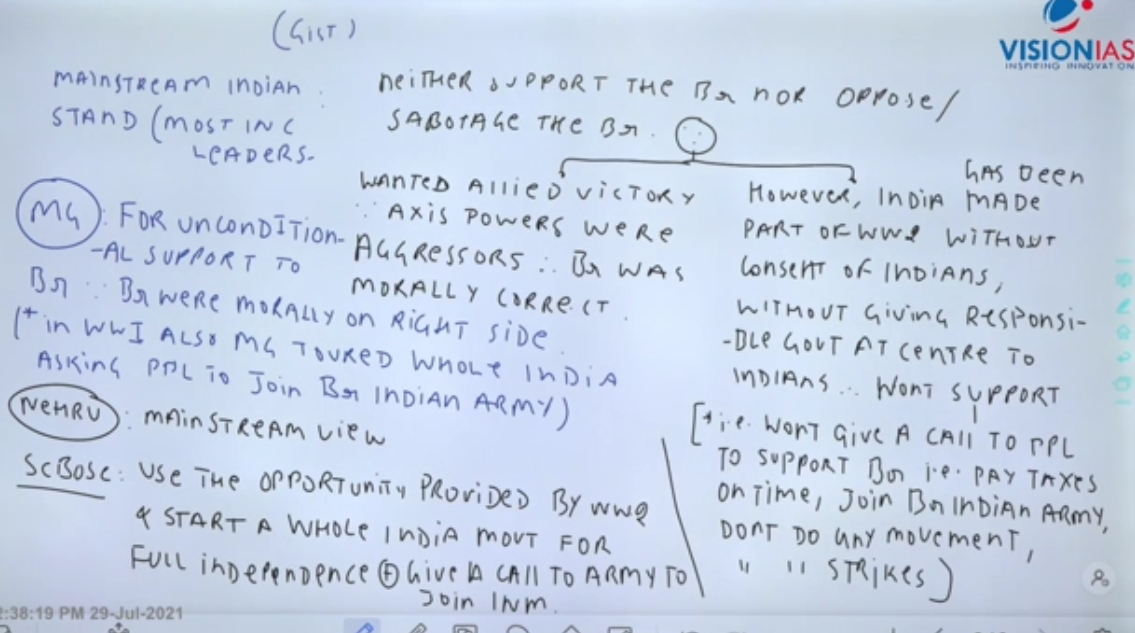 (GIST)
VISIONIAS
INSPIRING INNOVATION
MAINSTREAM INDIAN :
STAND (MOST INC
LEADERS.
NEITHER SUPPORT THE Br NOR OPPOSE/
SABOTAGE THE Br.
WANTED ALLIED VICTORY
∵ AXIS POWERS WERE
AGGRESSORS ∴ Br WAS
MORALLY CORRECT.
HAS BEEN
HOWEVER, INDIA MADE
PART OF WW2 WITHOUT
CONSENT OF INDIANS,
WITHOUT GIVING RESPONSI-
-BLE GOVT AT CENTRE TO
INDIANS ∴ WONT SUPPORT
[* i.e. WONT GIVE A CALL TO PPL
TO SUPPORT Br i.e. PAY TAXES
ON TIME, JOIN Br INDIAN ARMY,
DONT DO ANY MOVEMENT,
" " STRIKES]
MG : FOR UNCONDITION-
-AL SUPPORT TO
Br ∵ Br WERE MORALLY ON RIGHT SIDE.
(* IN WWI ALSO MG TOURED WHOLE INDIA
ASKING PPL TO JOIN Br INDIAN ARMY)
NEHRU : MAINSTREAM VIEW
SCBOSE : USE THE OPPORTUNITY PROVIDED BY WW2
& START A WHOLE INDIA MOVT FOR
FULL INDEPENDENCE ⊕ GIVE A CALL TO ARMY TO
JOIN INM.
2:38:19 PM 29-Jul-2021